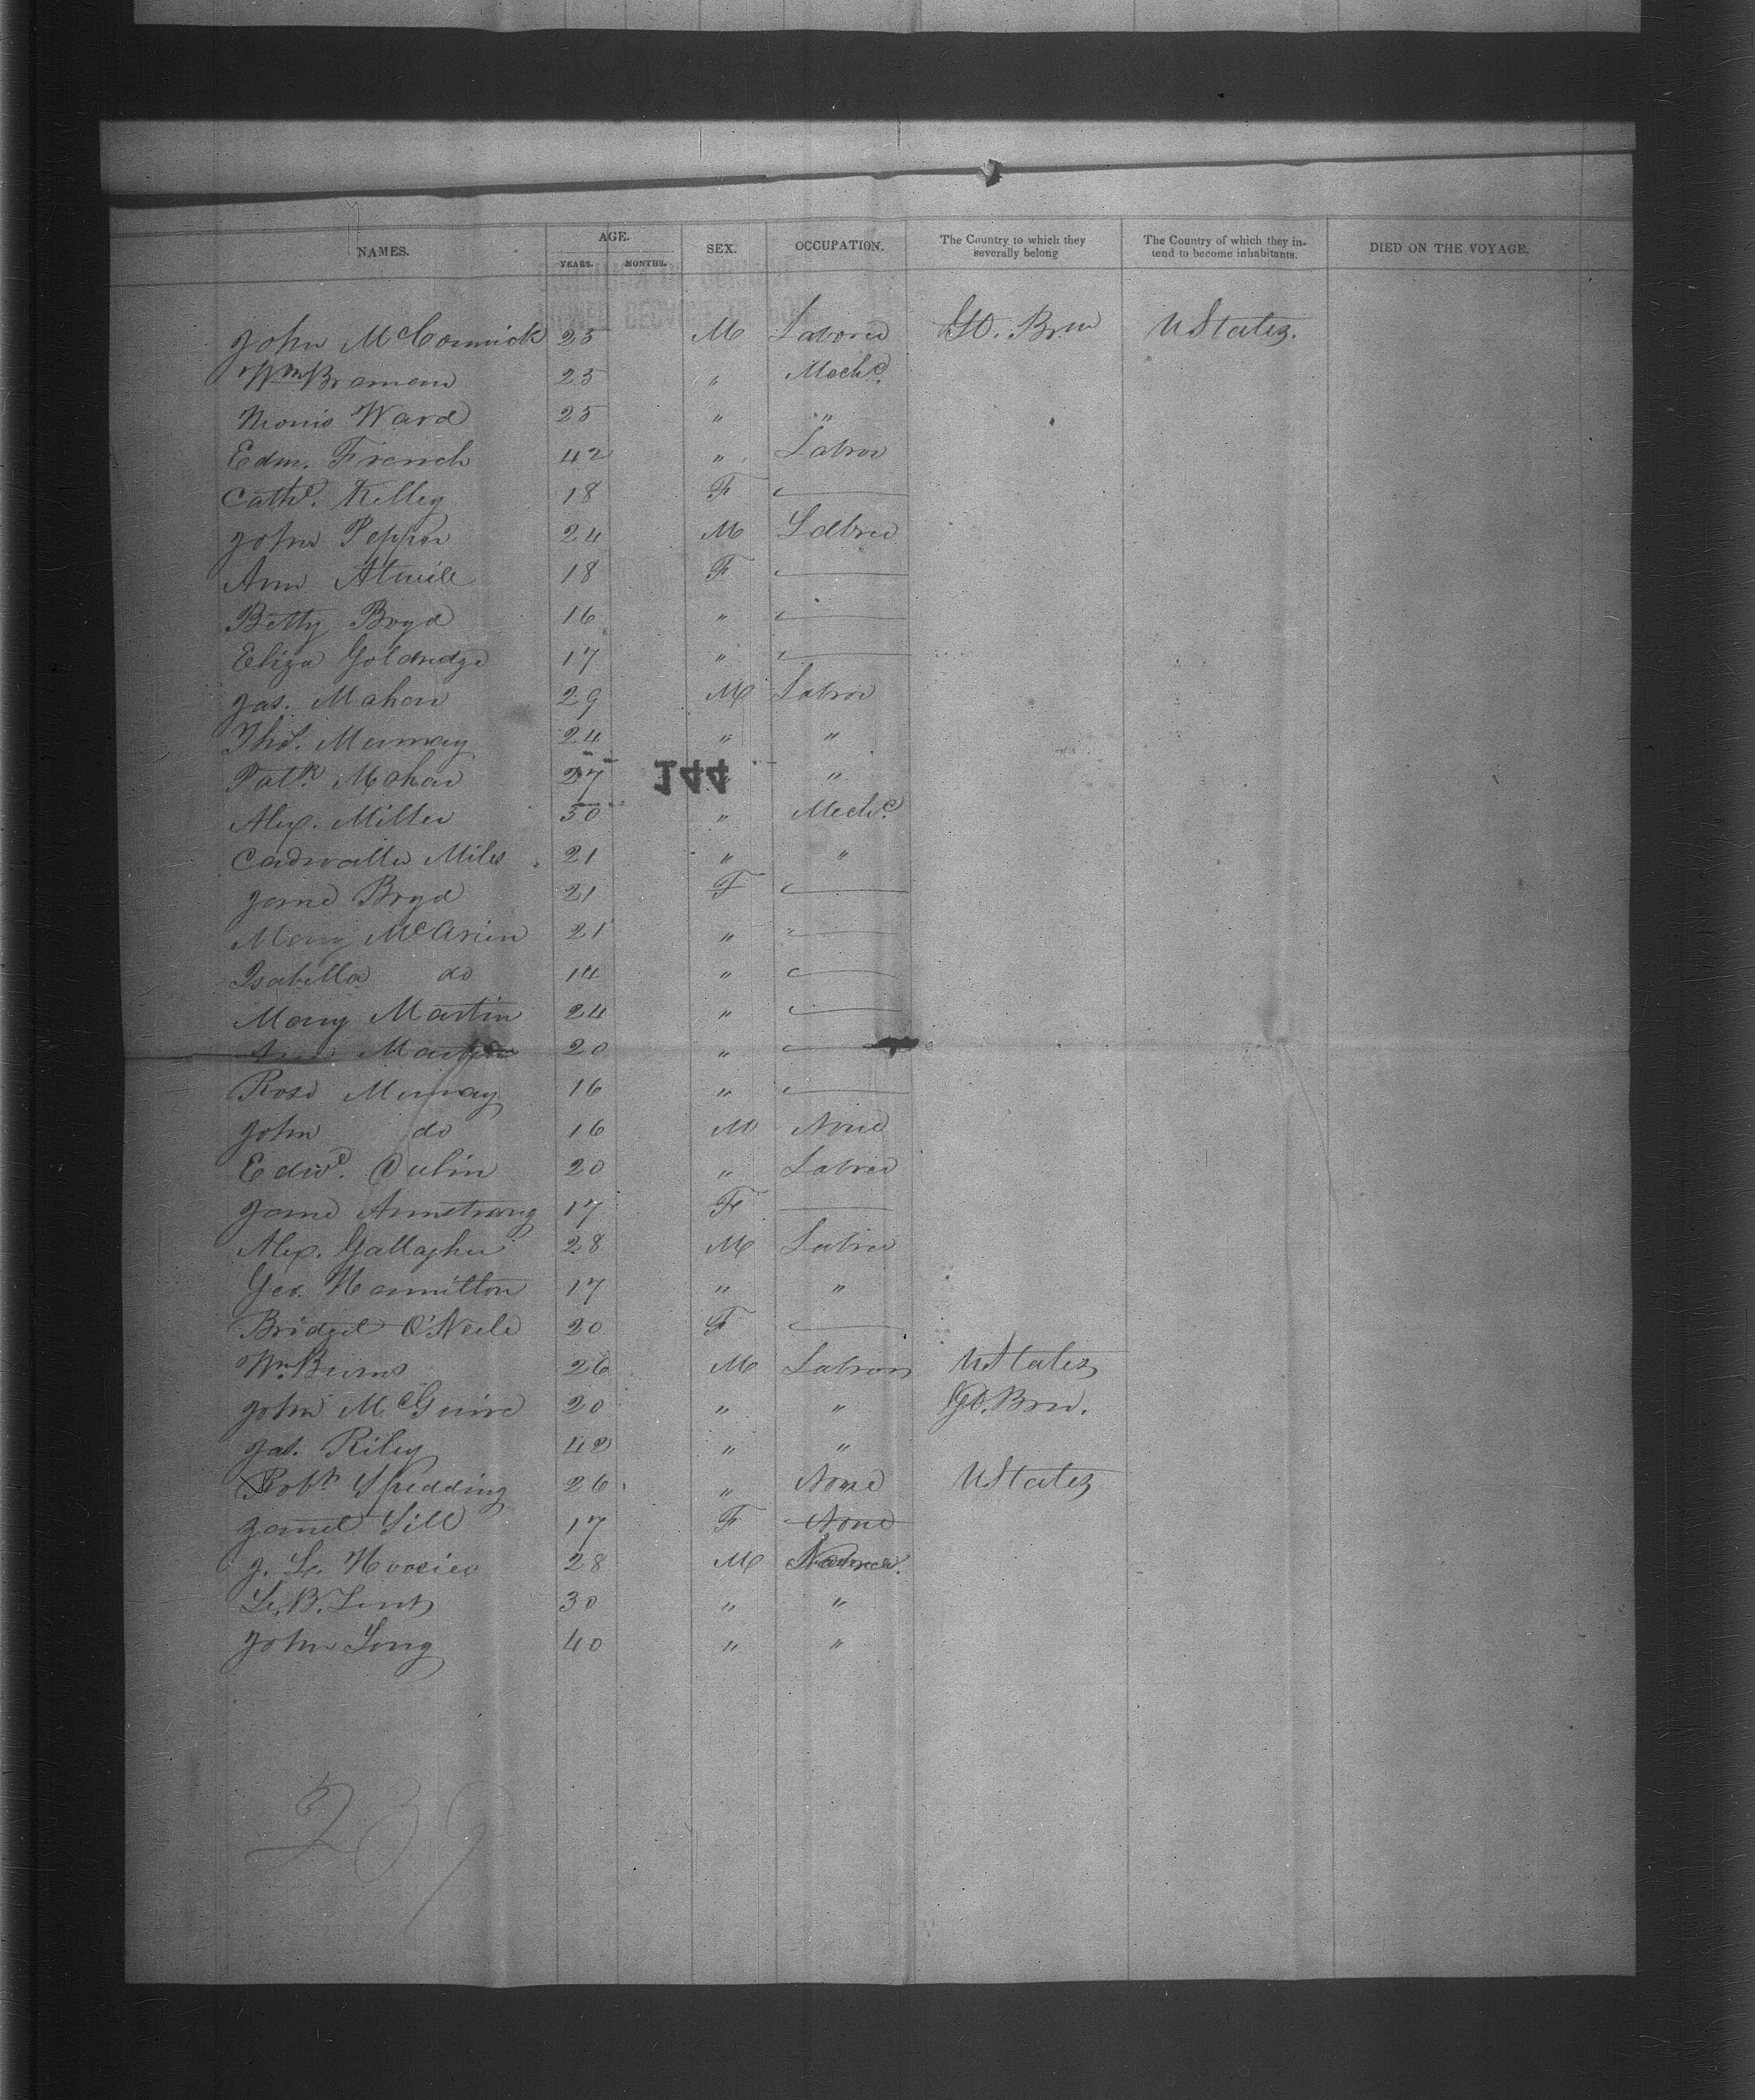 NAMES. AGE. SEX. OCCUPATION. The Country to which they severally belong The Country of which they intend to become inhabitants. DIED ON THE VOYAGE.
YEARS. MONTHS.
John McCormick 25 M Laborer Gt. Brn U States.
Wm Braman 25 " Mechc.
Morris Ward 25 " "
Edm. French 42 " Labror
Cathe. Kelley 18 F
John Pepper 24 M Labrer
Ann Atwill 18 F
Betty Boyd 16 "
Eliza Goldridge 17 "
Jas. Mahon 29 M Labror
Thos. Murray 24 " "
Patk. Mahan 27 " "
144
Alex. Miller 50 " Mechc.
Cadwaller Miles 21 " "
Jane Boyd 21 F
Mary 21 "
Isabella do 14 "
Mary Martin 24 "
Ann Martin 20 "
Rose Murray 16 "
John do 16 M None
Edwd. Culin 20 " Labrer
Jane Armstrong 17 F
Alex. Gallagher 28 M Labrer
Geo. Hamilton 17 " "
Bridget O'Neele 20 F
Wm. Burns 26 M Labror U States
John McGuire 20 " " Gt. Brn.
Jas. Riley 42 " "
Robt. Spedding 26 " None U States
Janet Sill 17 F None
J. L. 28 M
L. B. Lent 30 " "
John Long 40 " "
239